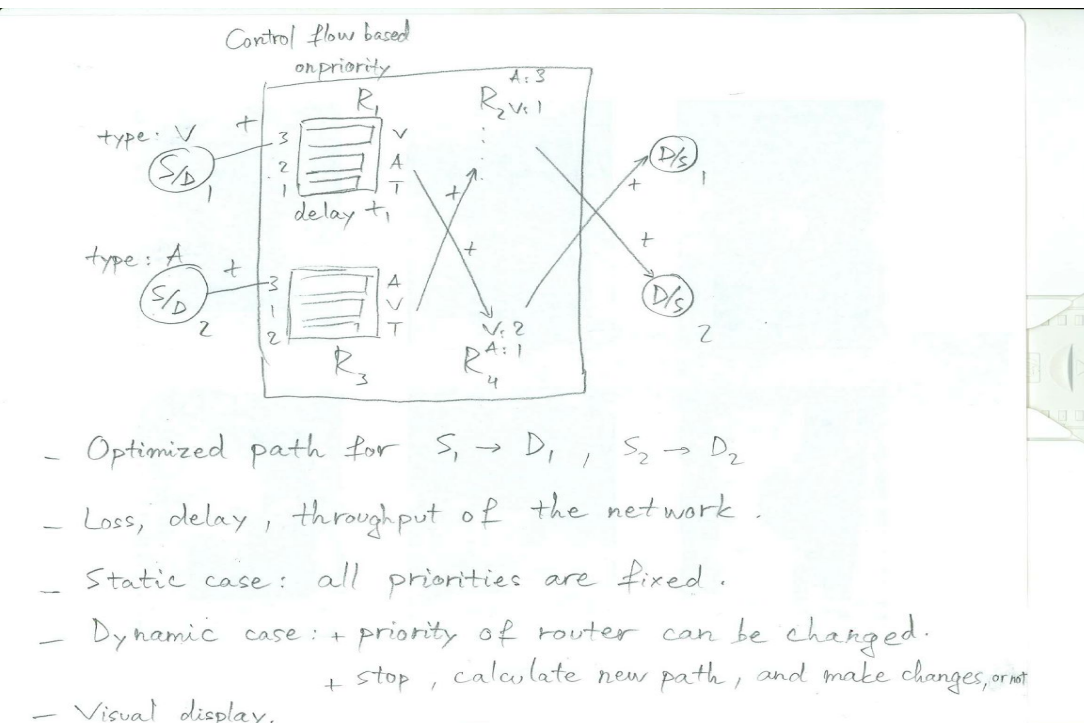 Control flow based
on priority
A: 3
R₁
R₂ V: 1
type: V
+
3
V
S/D 1
2
A
1
T
delay t₁
+
+
D/S 1
+
type: A
+
3
A
S/D 2
1
V
2
T
+
D/S 2
V: 2
R₃
R₄ A: 1
- Optimized path for S₁ → D₁ , S₂ → D₂
- Loss, delay, throughput of the network.
- Static case: all priorities are fixed.
- Dynamic case: + priority of router can be changed.
+ stop, calculate new path, and make changes, or not
- Visual display.